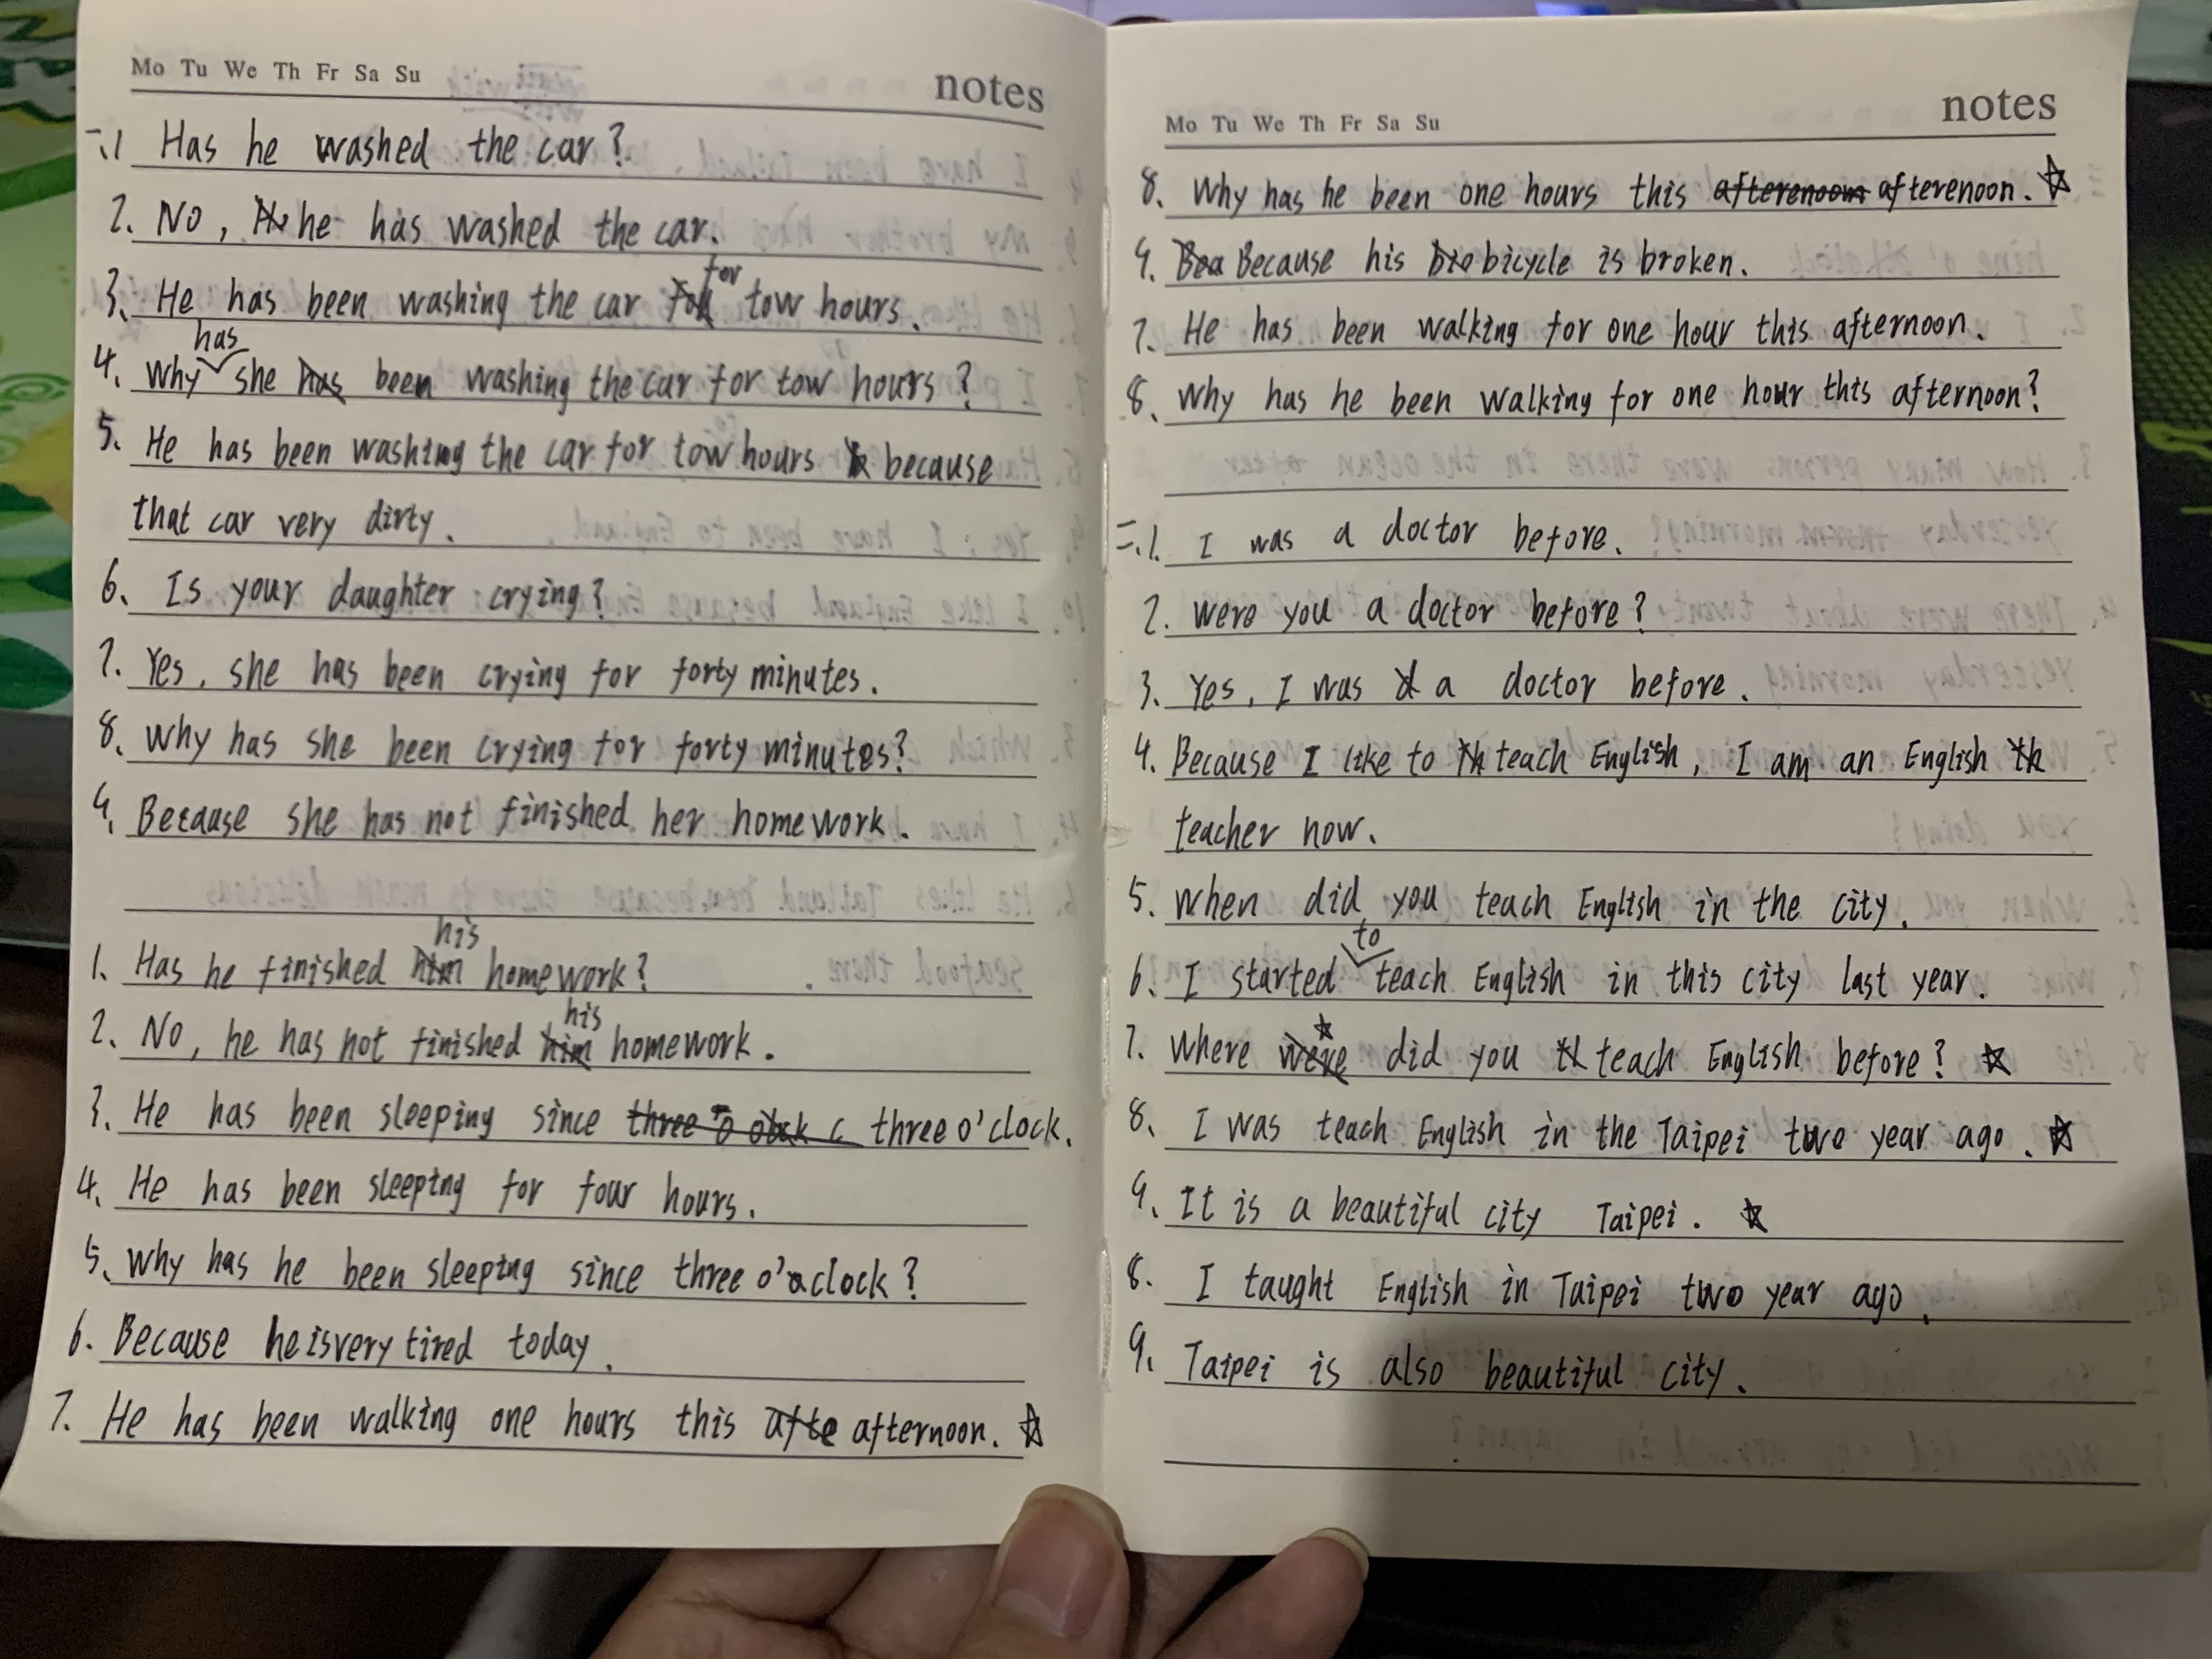 Mo Tu We Th Fr Sa Su notes
一.1 Has he washed the car?
2. No, he has washed the car.
3. He has been washing the car for tow hours.
4. Why has she been washing the car for tow hours?
5. He has been washing the car for tow hours because
that car very dirty.
6. Is your daughter crying?
7. Yes, she has been crying for forty minutes.
8. Why has she been crying for forty minutes?
9. Because she has not finished her homework.
1. Has he finished his homework?
2. No, he has not finished his homework.
3. He has been sleeping since three o'clock.
4. He has been sleeping for four hours.
5. Why has he been sleeping since three o'clock?
6. Because he is very tired today.
7. He has been walking one hours this afternoon. ☆
Mo Tu We Th Fr Sa Su notes
8. Why has he been one hours this afterenoon. ☆
9. Because his bicycle is broken.
7. He has been walking for one hour this afternoon.
8. Why has he been walking for one hour this afternoon?
二.1. I was a doctor before.
2. Were you a doctor before?
3. Yes, I was a doctor before.
4. Because I like to teach English, I am an English
teacher now.
5. When did you teach English in the city.
6. I started to teach English in this city last year.
7. Where did you teach English before? ☆
8. I was teach English in the Taipei two year ago. ☆
9. It is a beautiful city Taipei. ☆
8. I taught English in Taipei two year ago.
9. Taipei is also beautiful city.